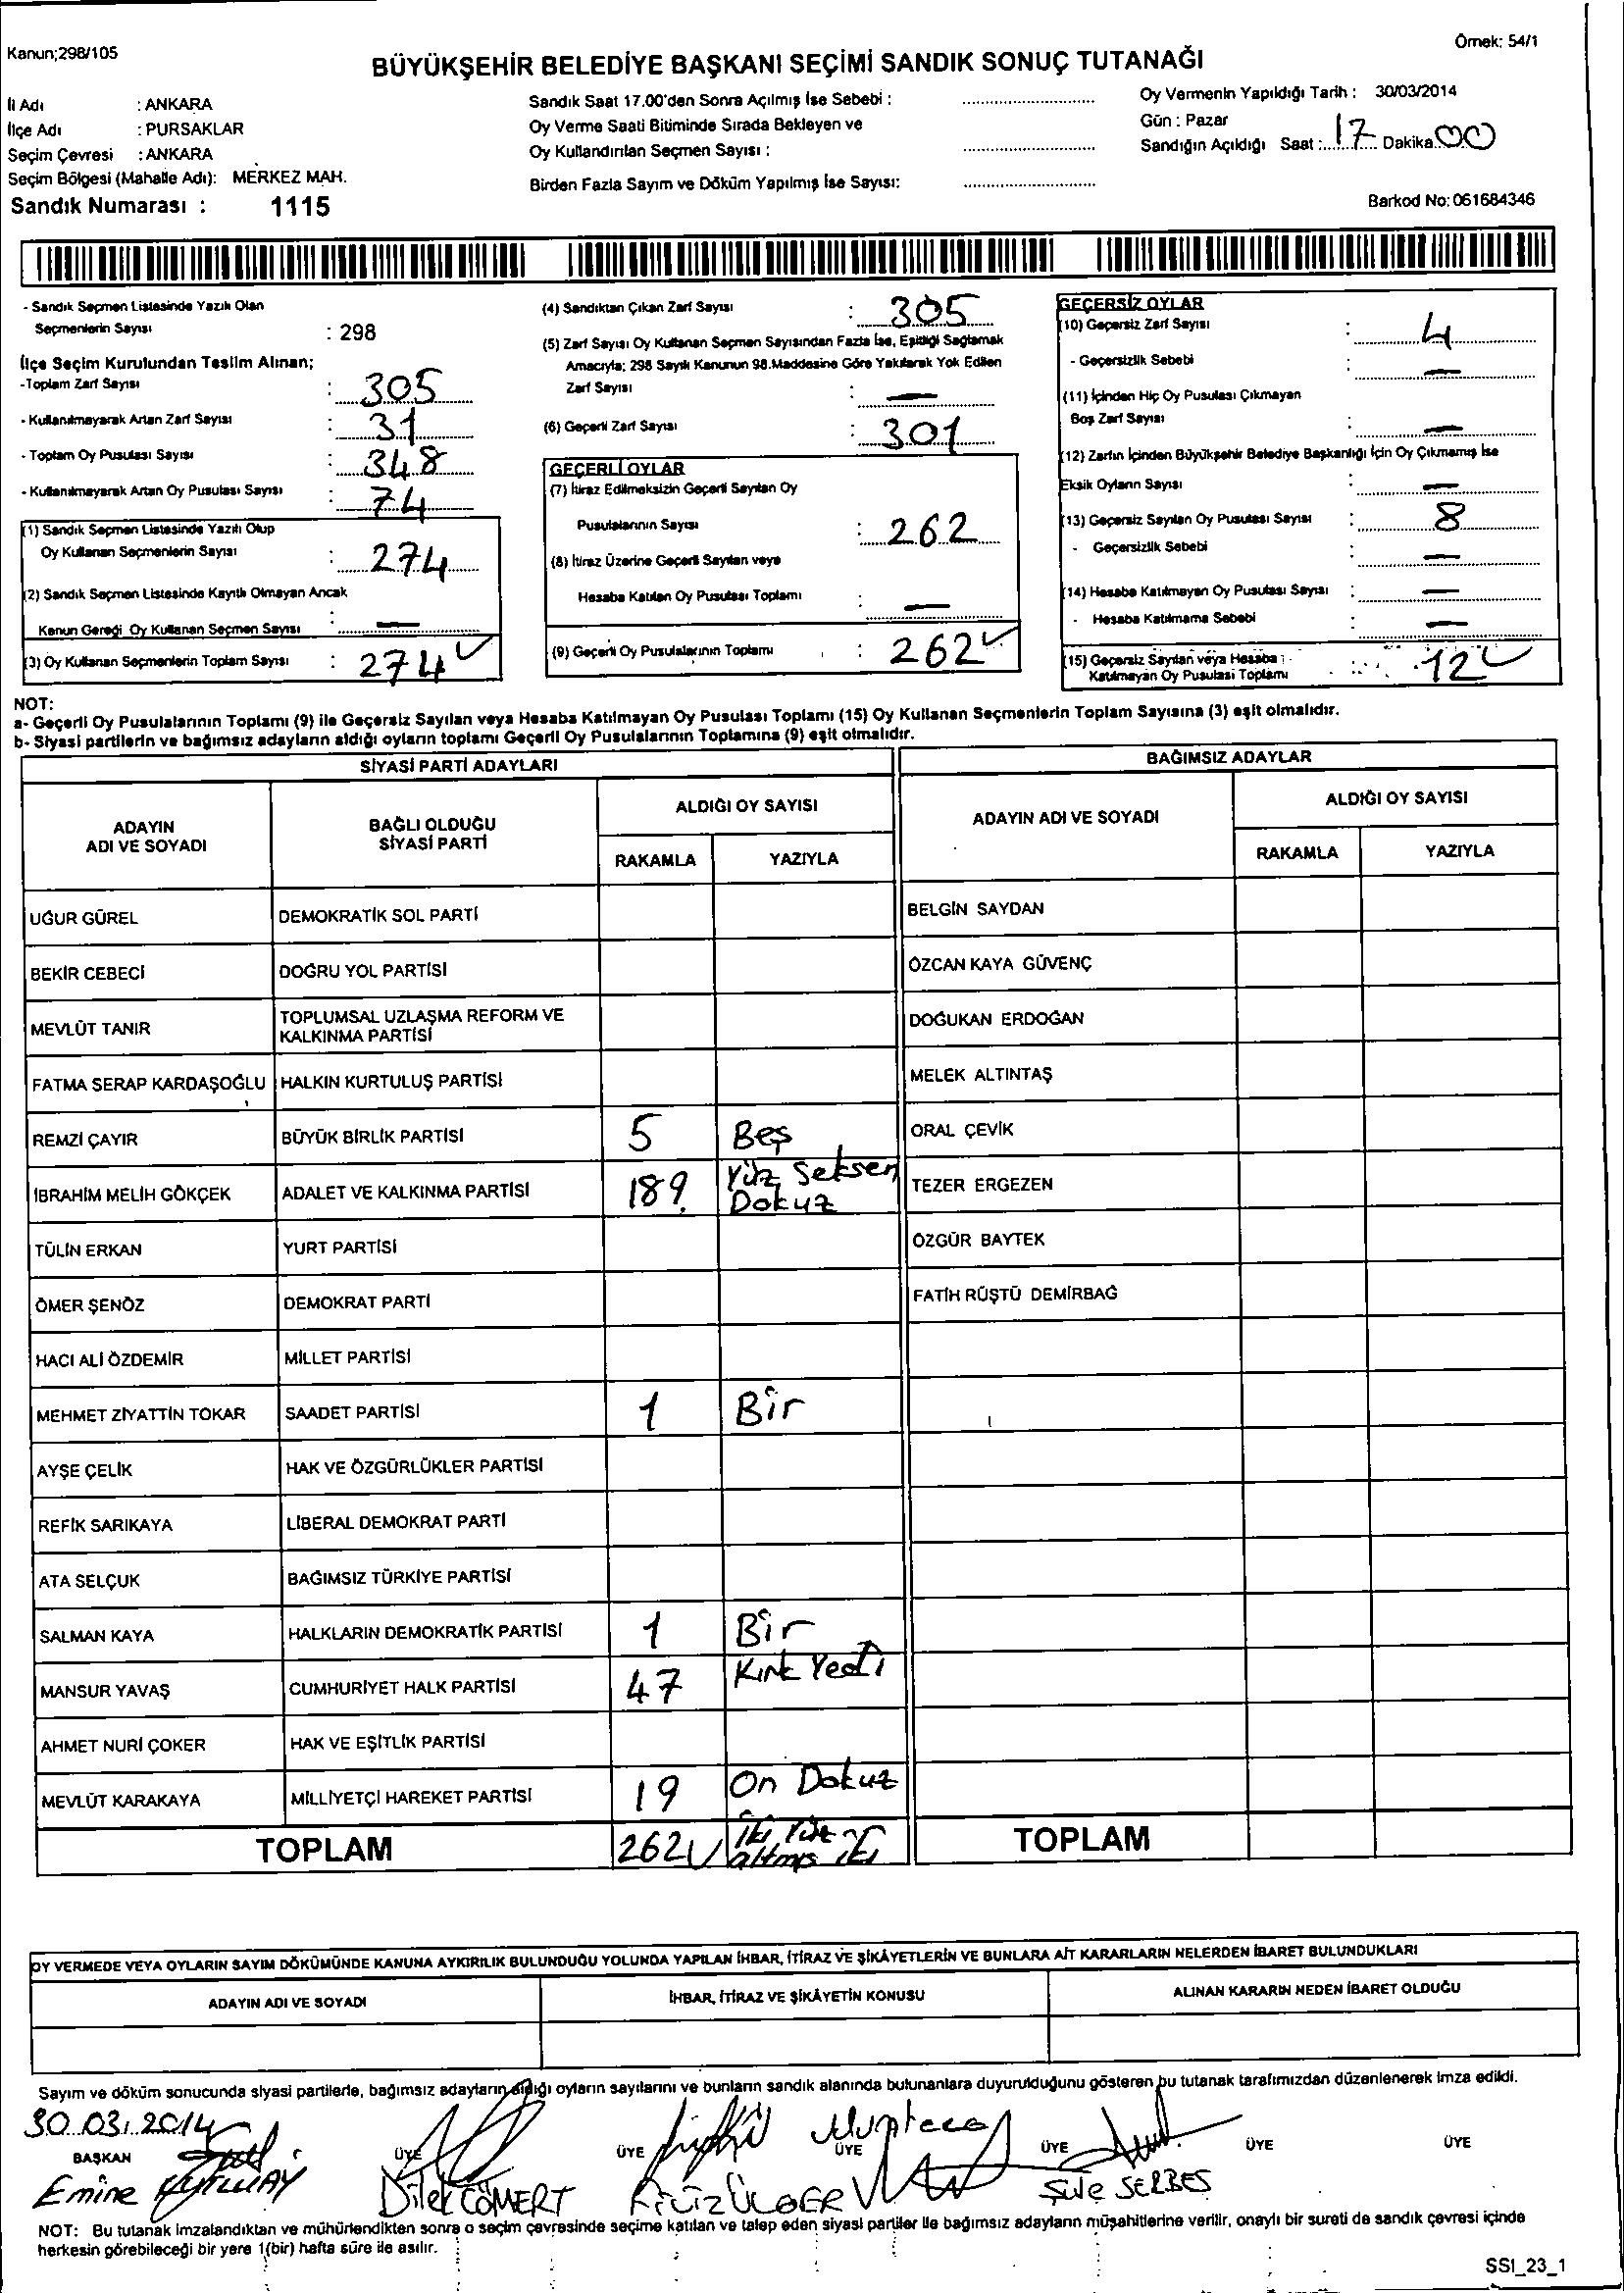 Kanun;298/105
Örnek: 54/1
BÜYÜKŞEHİR BELEDİYE BAŞKANI SEÇİMİ SANDIK SONUÇ TUTANAĞI
İl Adı : ANKARA
İlçe Adı : PURSAKLAR
Seçim Çevresi : ANKARA
Seçim Bölgesi (Mahalle Adı): MERKEZ MAH.
Sandık Numarası : 1115
Sandık Saat 17.00'den Sonra Açılmış İse Sebebi :
Oy Verme Saati Bitiminde Sırada Bekleyen ve
Oy Kullandırılan Seçmen Sayısı :
Birden Fazla Sayım ve Döküm Yapılmış İse Sayısı:
Oy Vermenin Yapıldığı Tarih : 30/03/2014
Gün : Pazar
Sandığın Açıldığı Saat : 17 Dakika 00
Barkod No: 061684346
- Sandık Seçmen Listesinde Yazılı Olan
Seçmenlerin Sayısı : 298
İlçe Seçim Kurulundan Teslim Alınan;
-Toplam Zarf Sayısı : 305
- Kullanılmayarak Artan Zarf Sayısı : 31
- Toplam Oy Pusulası Sayısı : 348
- Kullanılmayarak Artan Oy Pusulası Sayısı : 74
(1) Sandık Seçmen Listesinde Yazılı Olup
Oy Kullanan Seçmenlerin Sayısı : 274
(2) Sandık Seçmen Listesinde Kayıtlı Olmayan Ancak
Kanun Gereği Oy Kullanan Seçmen Sayısı : —
(3) Oy Kullanan Seçmenlerin Toplam Sayısı : 274 ✓
(4) Sandıktan Çıkan Zarf Sayısı : 305
(5) Zarf Sayısı Oy Kullanan Seçmen Sayısından Fazla İse, Eşitliği Sağlamak
Amacıyla; 298 Sayılı Kanunun 98.Maddesine Göre Yakılarak Yok Edilen
Zarf Sayısı : —
(6) Geçerli Zarf Sayısı : 301
GEÇERLİ OYLAR
(7) İtiraz Edilmeksizin Geçerli Sayılan Oy
Pusulalarının Sayısı : 262
(8) İtiraz Üzerine Geçerli Sayılan veya
Hesaba Katılan Oy Pusulası Toplamı : —
(9) Geçerli Oy Pusulalarının Toplamı : 262 ✓
GEÇERSİZ OYLAR
(10) Geçersiz Zarf Sayısı : 4
- Geçersizlik Sebebi : —
(11) İçinden Hiç Oy Pusulası Çıkmayan
Boş Zarf Sayısı : —
(12) Zarfın İçinden Büyükşehir Belediye Başkanlığı İçin Oy Çıkmamış İse
Eksik Oyların Sayısı : —
(13) Geçersiz Sayılan Oy Pusulası Sayısı : 8
- Geçersizlik Sebebi : —
(14) Hesaba Katılmayan Oy Pusulası Sayısı : —
- Hesaba Katılmama Sebebi : —
(15) Geçersiz Sayılan veya Hesaba
Katılmayan Oy Pusulası Toplamı : 12 ✓
NOT:
a- Geçerli Oy Pusulalarının Toplamı (9) ile Geçersiz Sayılan veya Hesaba Katılmayan Oy Pusulası Toplamı (15) Oy Kullanan Seçmenlerin Toplam Sayısına (3) eşit olmalıdır.
b- Siyasi partilerin ve bağımsız adayların aldığı oyların toplamı Geçerli Oy Pusulalarının Toplamına (9) eşit olmalıdır.
SİYASİ PARTİ ADAYLARI
BAĞIMSIZ ADAYLAR
ADAYIN ADI VE SOYADI
BAĞLI OLDUĞU SİYASİ PARTİ
ALDIĞI OY SAYISI
RAKAMLA YAZIYLA
ADAYIN ADI VE SOYADI
ALDIĞI OY SAYISI
RAKAMLA YAZIYLA
UĞUR GÜREL DEMOKRATİK SOL PARTİ BELGİN SAYDAN
BEKİR CEBECİ DOĞRU YOL PARTİSİ ÖZCAN KAYA GÜVENÇ
MEVLÜT TANIR TOPLUMSAL UZLAŞMA REFORM VE KALKINMA PARTİSİ DOĞUKAN ERDOĞAN
FATMA SERAP KARDAŞOĞLU HALKIN KURTULUŞ PARTİSİ MELEK ALTINTAŞ
REMZİ ÇAYIR BÜYÜK BİRLİK PARTİSİ 5 Beş ORAL ÇEVİK
İBRAHİM MELİH GÖKÇEK ADALET VE KALKINMA PARTİSİ 189 Yüz Seksen Dokuz TEZER ERGEZEN
TÜLİN ERKAN YURT PARTİSİ ÖZGÜR BAYTEK
ÖMER ŞENÖZ DEMOKRAT PARTİ FATİH RÜŞTÜ DEMİRBAĞ
HACI ALİ ÖZDEMİR MİLLET PARTİSİ
MEHMET ZİYATTİN TOKAR SAADET PARTİSİ 1 Bir
AYŞE ÇELİK HAK VE ÖZGÜRLÜKLER PARTİSİ
REFİK SARIKAYA LİBERAL DEMOKRAT PARTİ
ATA SELÇUK BAĞIMSIZ TÜRKİYE PARTİSİ
SALMAN KAYA HALKLARIN DEMOKRATİK PARTİSİ 1 Bir
MANSUR YAVAŞ CUMHURİYET HALK PARTİSİ 47 Kırk Yedi
AHMET NURİ ÇOKER HAK VE EŞİTLİK PARTİSİ
MEVLÜT KARAKAYA MİLLİYETÇİ HAREKET PARTİSİ 19 On Dokuz
TOPLAM 262 ✓ İki Yüz altmış iki TOPLAM
OY VERMEDE VEYA OYLARIN SAYIM DÖKÜMÜNDE KANUNA AYKIRILIK BULUNDUĞU YOLUNDA YAPILAN İHBAR, İTİRAZ VE ŞİKÂYETLERİN VE BUNLARA AİT KARARLARIN NELERDEN İBARET BULUNDUKLARI
ADAYIN ADI VE SOYADI İHBAR, İTİRAZ VE ŞİKÂYETİN KONUSU ALINAN KARARIN NEDEN İBARET OLDUĞU
Sayım ve döküm sonucunda siyasi partilerle, bağımsız adayların aldığı oyların sayılarını ve bunların sandık alanında bulunanlara duyurulduğunu gösteren bu tutanak tarafımızdan düzenlenerek imza edildi.
30.03.2014
BAŞKAN ÜYE ÜYE ÜYE ÜYE ÜYE ÜYE
Emine
Dilek CÖMERT
Şule SERBES
NOT: Bu tutanak imzalandıktan ve mühürlendikten sonra o seçim çevresinde seçime katılan ve talep eden siyasi partiler ile bağımsız adayların müşahitlerine verilir, onaylı bir sureti de sandık çevresi içinde
herkesin görebileceği bir yere 1(bir) hafta süre ile asılır.
SSI_23_1